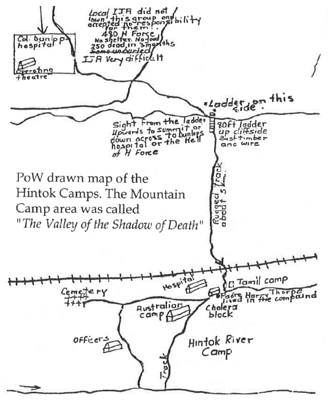 Local IJA did not
"own" this group and
accepted no responsibility
for them!
480 H Force
No shelter. No food
250 dead in 3 months
some unburied
IJA Very difficult
hospital
Operating
theatre
Ladder on this
side.
Sight from the ladder
Upwards to Summit or
down across to
hospital or the Hell
of H Force
70ft ladder
up cliffside
timber
and wire
PoW drawn map of the
Hintok Camps. The Mountain
Camp area was called
"The Valley of the Shadow of Death"
Rugged Track
about 5
Hospital
Tamil camp
Cemetery
Padre Harry Thorpe
lived in the compound
Australian
camp
Cholera
block
Officers
Hintok River
Camp
Track